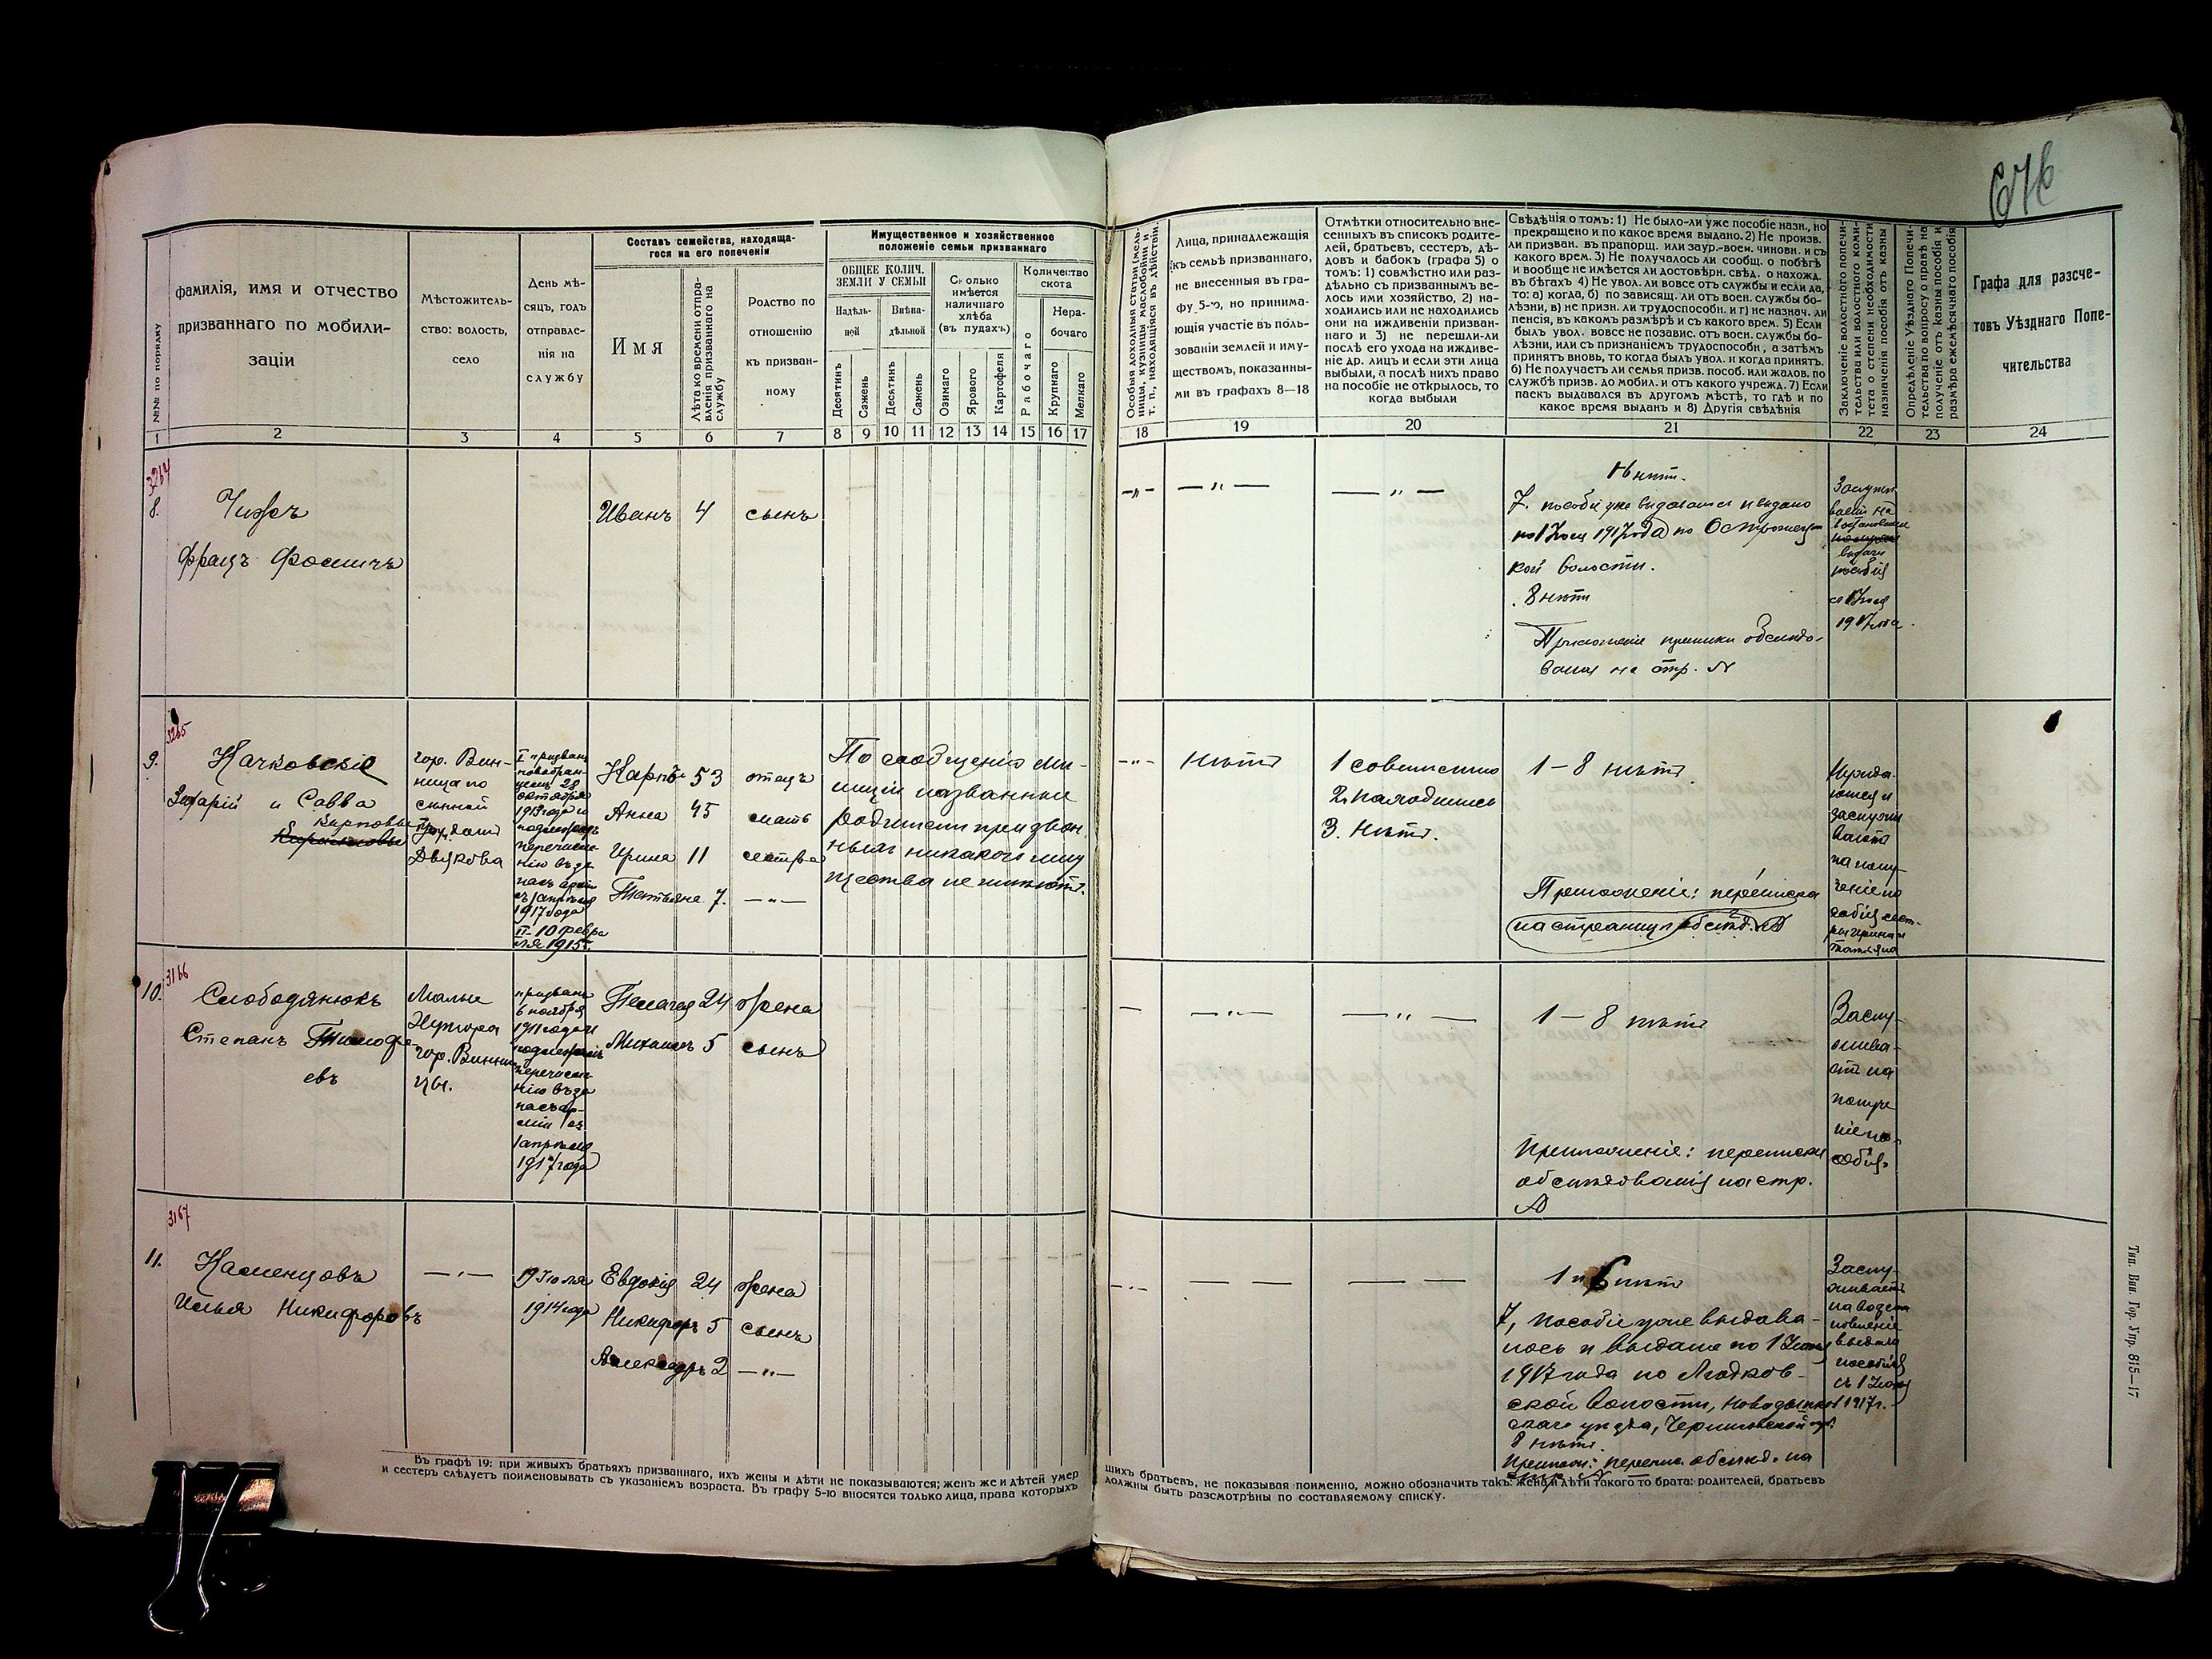 Составъ семейства, находяща-
гося на его попеченіи
Имущественное и хозяйственное
положеніе семьи призваннаго
№№ по порядку
фамилія, имя и отчество
призваннаго по мобили-
заціи
Мѣстожитель-
ство: волость,
село
День мѣ-
сяцъ, годъ
отправле-
нія на
службу
Имя
Лѣта ко времени отпра-
вленія призваннаго на
службу
Родство по
отношенію
къ призван-
ному
ОБЩЕЕ КОЛИЧ.
ЗЕМЛИ У СЕМЬИ
Надѣль-
ной
Внѣна-
дѣльной
Десятинъ
Сажень
Десятинъ
Сажень
Сколько
имѣется
наличнаго
хлѣба
(въ пудахъ)
Озимаго
Яроваго
Картофеля
Количество
скота
Рабочаго
Нера-
бочаго
Крупнаго
Мелкаго
Особыя доходныя статьи (мель-
ницы, кузницы, маслобойни и
т. п., находящіяся въ дѣйствіи)
Лица, принадлежащія
къ семьѣ призваннаго,
не внесенныя въ гра-
фу 5-ю, но принима-
ющія участіе въ поль-
зованіи землей и иму-
ществомъ, показанны-
ми въ графахъ 8—18
Отмѣтки относительно вне-
сенныхъ въ списокъ родите-
лей, братьевъ, сестеръ, дѣ-
довъ и бабокъ (графа 5) о
томъ: 1) совмѣстно или раз-
дѣльно съ призваннымъ ве-
лось ими хозяйство, 2) на-
ходились или не находились
они на иждивеніи призван-
наго и 3) не перешли-ли
послѣ его ухода на иждиве-
ніе др. лицъ и если эти лица
выбыли, а послѣ нихъ право
на пособіе не открылось, то
когда выбыли
Свѣдѣнія о томъ: 1) Не было-ли уже пособіе назн., но
прекращено и по какое время выдано. 2) Не произв.
ли призван. въ прапорщ. или заур.-воен. чиновн. и съ
какого врем. 3) Не получалось ли сообщ. о побѣгѣ
и вообще не имѣется ли достовѣрн. свѣд. о нахожд.
въ бѣгахъ 4) Не увол. ли вовсе отъ службы и если да,
то: а) когда, б) по зависящ. ли отъ воен. службы бо-
лѣзни, в) не призн. ли трудоспособн. и г) не назнач. ли
пенсія, въ какомъ размѣрѣ и съ какого врем. 5) Если
былъ увол. вовсе не позавис. отъ воен. службы бо-
лѣзни, или съ признаніемъ трудоспособн., а затѣмъ
принятъ вновь, то когда былъ увол. и когда принятъ.
6) Не получаетъ ли семья призв. пособ. или жалов. по
службѣ призв. до мобил. и отъ какого учрежд. 7) Если
паекъ выдавался въ другомъ мѣстѣ, то гдѣ и по
какое время выданъ и 8) Другія свѣдѣнія
Заключеніе волостного попечи-
тельства или волостного коми-
тета о степени необходимости
назначенія пособія отъ казны
Опредѣленіе Уѣзднаго Попечи-
тельства по вопросу о правѣ на
полученіе отъ казны пособія и
размѣра ежемѣсячнаго пособія
Графа для разсче-
товъ Уѣзднаго Попе-
чительства
1 2 3 4 5 6 7 8 9 10 11 12 13 14 15 16 17
18 19 20 21 22 23 24
3264
8.
Чижъ
Францъ Фомичъ
Иванъ 4 сынъ
7. пособіе уже выдавалось и выдано
по 1 Іюня 1917 года по
кой волости.
8 нѣтъ
на стр. №
3265
9.
Качковскіе
Захарій и Савва
Карповы
гор. Вин-
ница по
сѣнной
Дьякова
I призванъ
новобран-
цемъ 28
октября
1913 года и
подлежитъ
перечисле-
нію въ за-
пасъ арміи
съ 1 апрѣля
1917 года
II - 10 февра
ля 1915 г.
Карпъ 53 отецъ
Анна 45 мать
Ирина 11 сестра
Татьяна 7. — „ —
По сообщенію ми-
лиціи названные
родители призван
ныхъ никакого иму
щества не имѣютъ.
нѣтъ
1 совмѣстно
2. находились
3. Нѣтъ.
1 — 8 нѣтъ.
Приложеніе: переписка
на страниц. обслѣд. №
Нужда-
ющаяся
заслужи
ваетъ
на полу-
ченіе по
собія сест-
ры Ирина и
Татьяна
3166
10.
Слободянюкъ
Степанъ Тимофе-
евъ
Малые
Хутора
гор. Винни
цы.
призванъ
6 ноября
1911 года и
подлежитъ
перечисле-
нію въ за
пасъ ар-
міи съ
1 апрѣля
1917 года
Пелагея 24 жена
Михаилъ 5 сынъ
1 — 8 нѣтъ
Приложеніе: переписка
обслѣдованія на стр.
№
Заслу-
жива-
етъ на
получе
ніе по-
собія.
3167
11.
Каменцовъ
Илья Никифоровъ
19 Іюля
1914 года
Евдокія 24 жена
Никифоръ 5 сынъ
Александръ 2 — „ —
1 и 6 нѣтъ
7, Пособіе уже выдава-
лось и выдано по 1 Іюня
1917 года по Лядков-
ской волости, Новозыбков
скаго уѣзда, Черниговской губ.
8 нѣтъ.
Прилож: перепис. обслѣд. на
стр. №
Заслу-
живаетъ
на возста
новленіе
выдачи
пособія
съ 1 Іюня
1917 г.
Въ графѣ 19: при живыхъ братьяхъ призваннаго, ихъ жены и дѣти не показываются; женъ же и дѣтей умер
шихъ братьевъ, не показывая поименно, можно обозначить такъ: жена и дѣти такого то брата: родителей, братьевъ
и сестеръ слѣдуетъ поименовывать съ указаніемъ возраста. Въ графу 5-ю вносятся только лица, права которыхъ
должны быть разсмотрѣны по составляемому списку.
Тип. Вин. Гор. Упр. 815—17